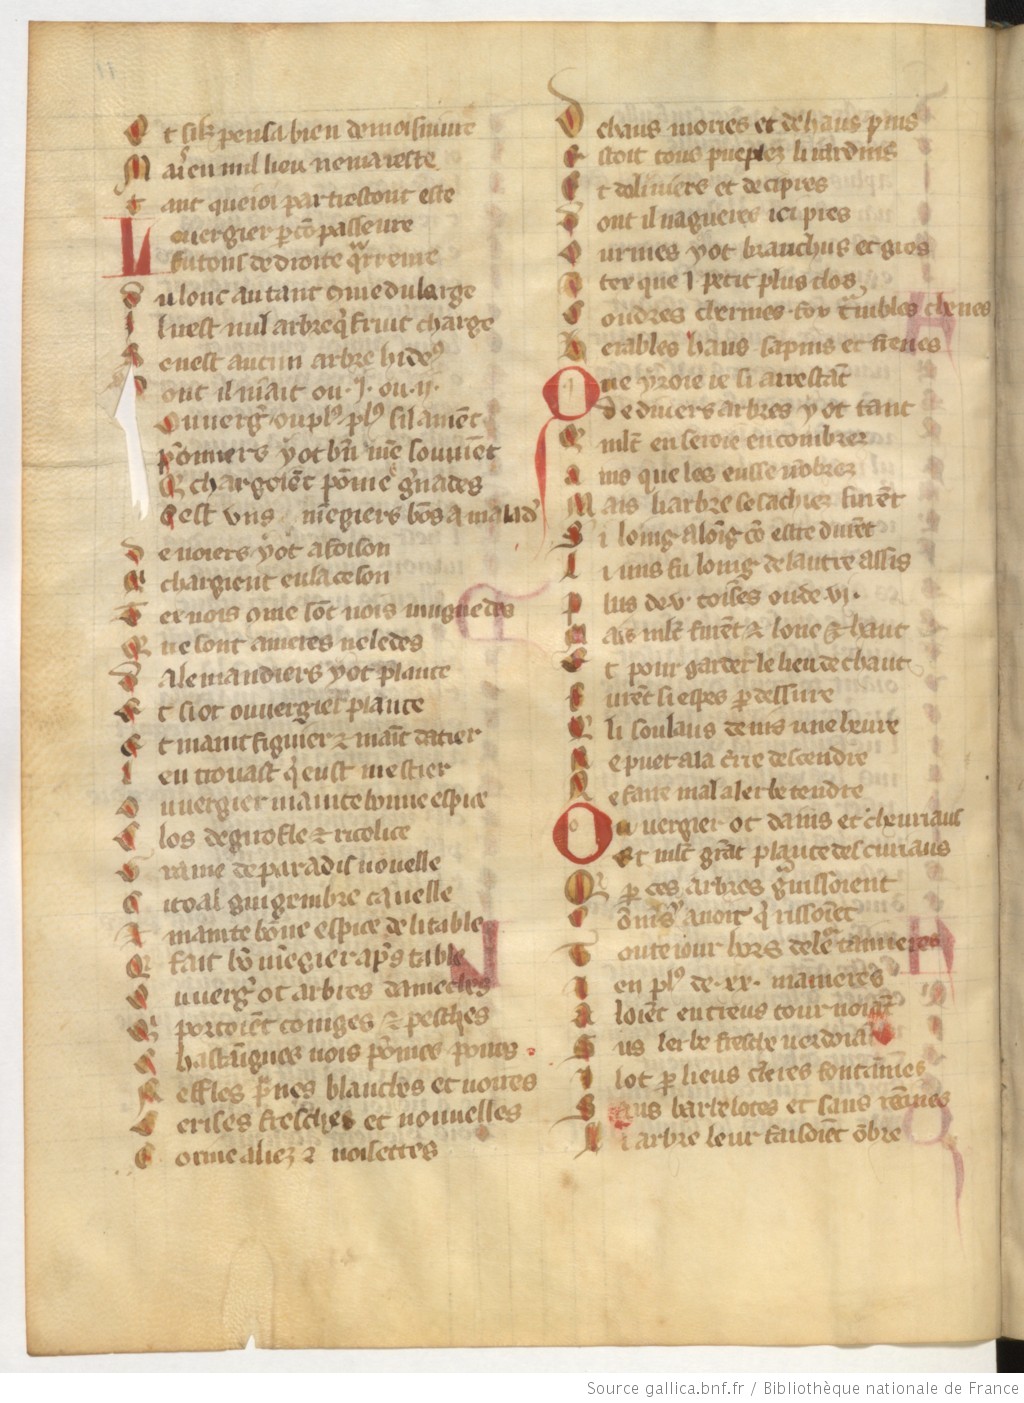 Et si pensa bien de moi suivre
Mais en nul lieu ne m areste
Tant que ioi partot sont este
Le vergier p co passeure
fu tous de droite qrreure
D u lonc autant 9me du large
I l nest nul arbre q fruit charge
S e nest aucun arbre hideus
D ont il niait ou .i. ou .ii.
Ou vergr ou pl9 pl9 sil auiet
Pomiers y ot bn me souuiet
Qi chargoiet pome grnades
C est vns megiers bos a malades
D e noiers y ot a foison
Q i chargient en la ceson
T ex nois 9me sot nois muguedes
Q i ne sont ameres ne ledes
D Alemandiers y ot plante
E t si ot ou vergier plante
E t maint figuier & mait datier
I en trouast q eust mestier
O u vergier mainte bonne espice
C los de girofle & ricolice
G raine de paradis nouelle
C itoal gingembre canelle
A mainte bone espice delitable
Q fait bo megier aps table
O u vergr ot arbres damecles
Q i portoiet coinges & pesches
C hastaignes nois pomes poires
N effles prnes blanches et noires
C erises fresches et nouuelles
C orme aliez & noisettes
D e haus moriers et de haus pins
E stoit tous pueplez li iardins
E t doliuiers et de cipres
D ont il na gueres ici pres
O urmes y ot branchus et gros
A ter que i petit plus clos
C oudres chermes for trinbles chenes
E rables haus sapins et frenes
Que yroie ie si arrestat
de diuers arbres y ot tant
Q mlt en seroie encombrez
A ins que les eusse nobrez
Mais li arbre ce sachiez furet
S i loing a loig co estre duret
L i uns fu loing de lautre assis
P lus de .v. toises ou de .vi.
M ais mlt furet & lonc & haut
E t pour garder le lieu de chaut
F uret si espes p dessure
Q li soulaus en nis une heure
N e puet a la trre descendre
N e faire mal a lerbe tendre
Ou vergier ot dains et cheuriaus
Et mlt grat plante descuriaus
Q i p ces arbres grmissoient
C onnis y auoit q issoiet
T oute iour hors de leur tainieres
E n pl9 de .xx. manieres
A loiet entreus tournoiat
S us lerbe fresche verdoiat
I l ot p lieus cleres fontaines
S ans barbelotes et sans reines
Q i arbre leur faisdiet obre
Source gallica.bnf.fr / Bibliothèque nationale de France